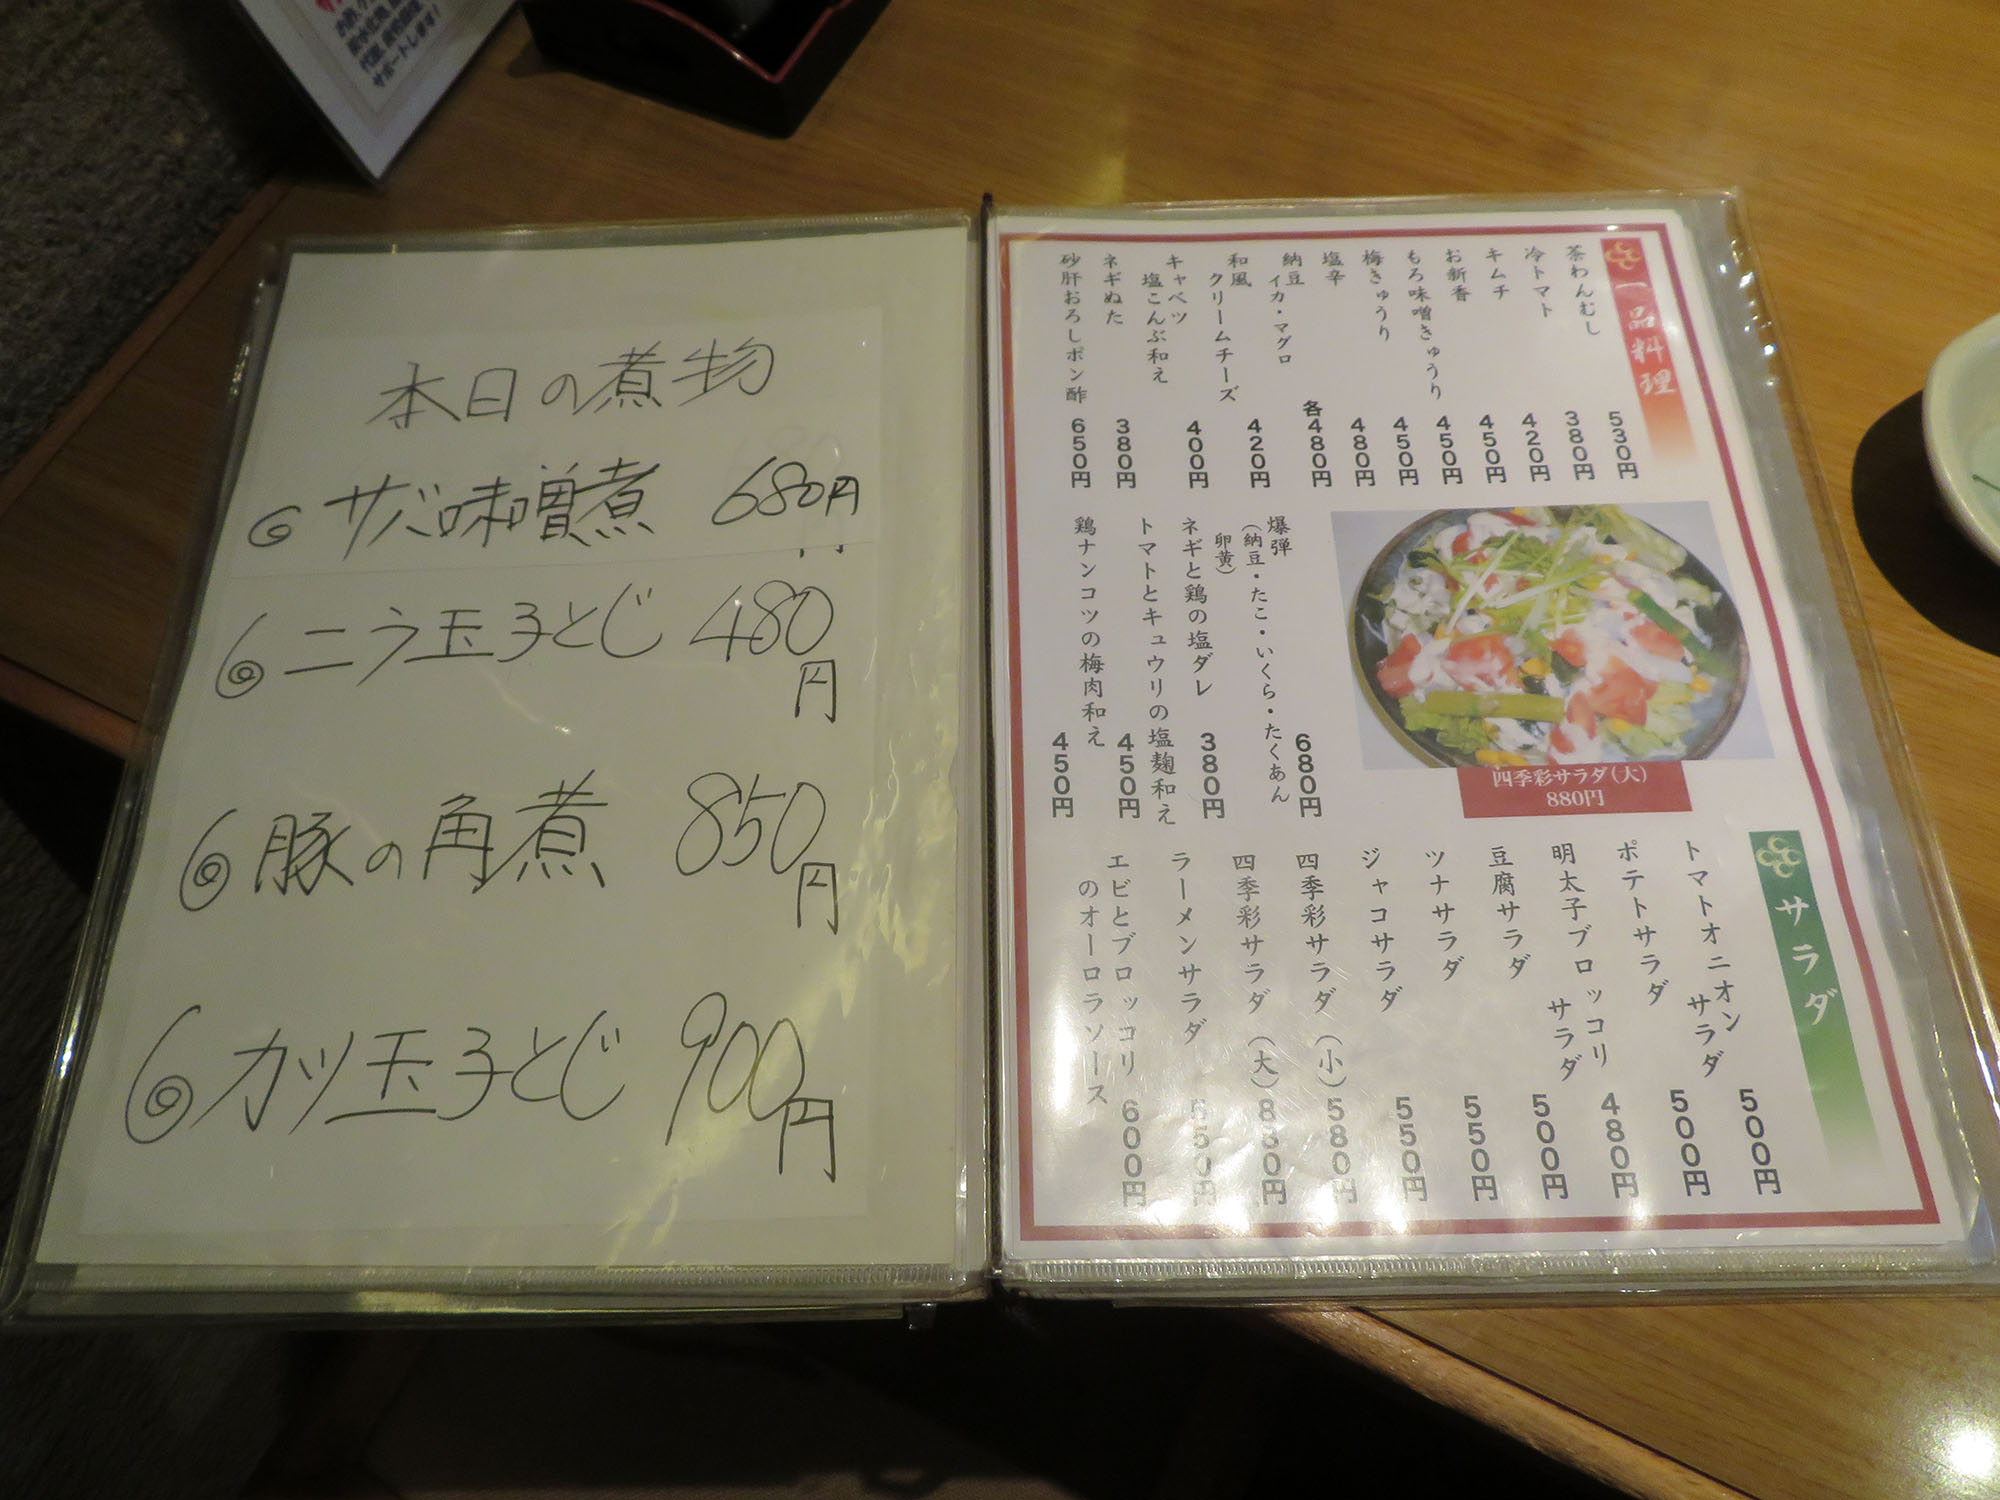 本日の煮物
◎サバ味噌煮 680円
◎ニラ玉子とじ 480円
◎豚の角煮 850円
◎カツ玉子とじ 900円
一品料理
茶わんむし 530円
冷トマト 380円
キムチ 420円
お新香 450円
もろ味噌きゅうり 450円
梅きゅうり 450円
塩辛 480円
納豆 イカ・マグロ 各480円
和風クリームチーズ 420円
キャベツ塩こんぶ和え 400円
ネギぬた 380円
砂肝おろしポン酢 650円
爆弾
(納豆・たこ・いくら・たくあん
卵黄) 680円
ネギと鶏の塩ダレ 380円
トマトとキュウリの塩麹和え 450円
鶏ナンコツの梅肉和え 450円
四季彩サラダ(大)
880円
サラダ
トマトオニオンサラダ 500円
ポテトサラダ 500円
明太子ブロッコリサラダ 480円
豆腐サラダ 500円
ツナサラダ 550円
ジャコサラダ 550円
四季彩サラダ(小) 580円
四季彩サラダ(大) 880円
ラーメンサラダ 550円
エビとブロッコリ
のオーロラソース 600円
サポートします!